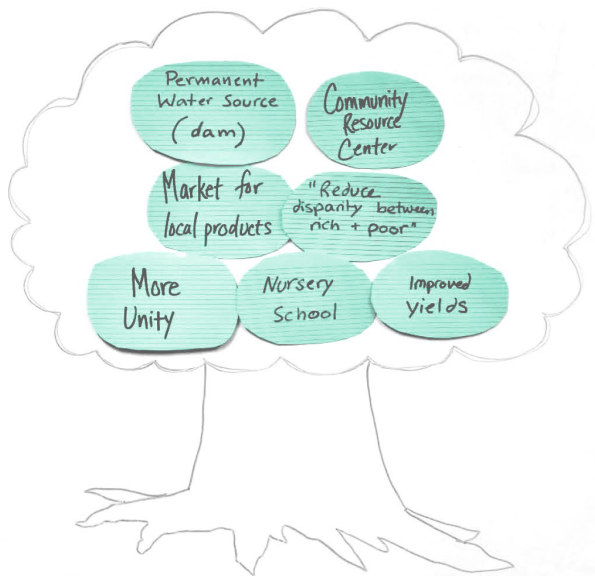 Permanent
Water Source
(dam)
Community
Resource
Center
Market for
local products
"Reduce
disparity between
rich + poor"
More
Unity
Nursery
School
Improved
yields